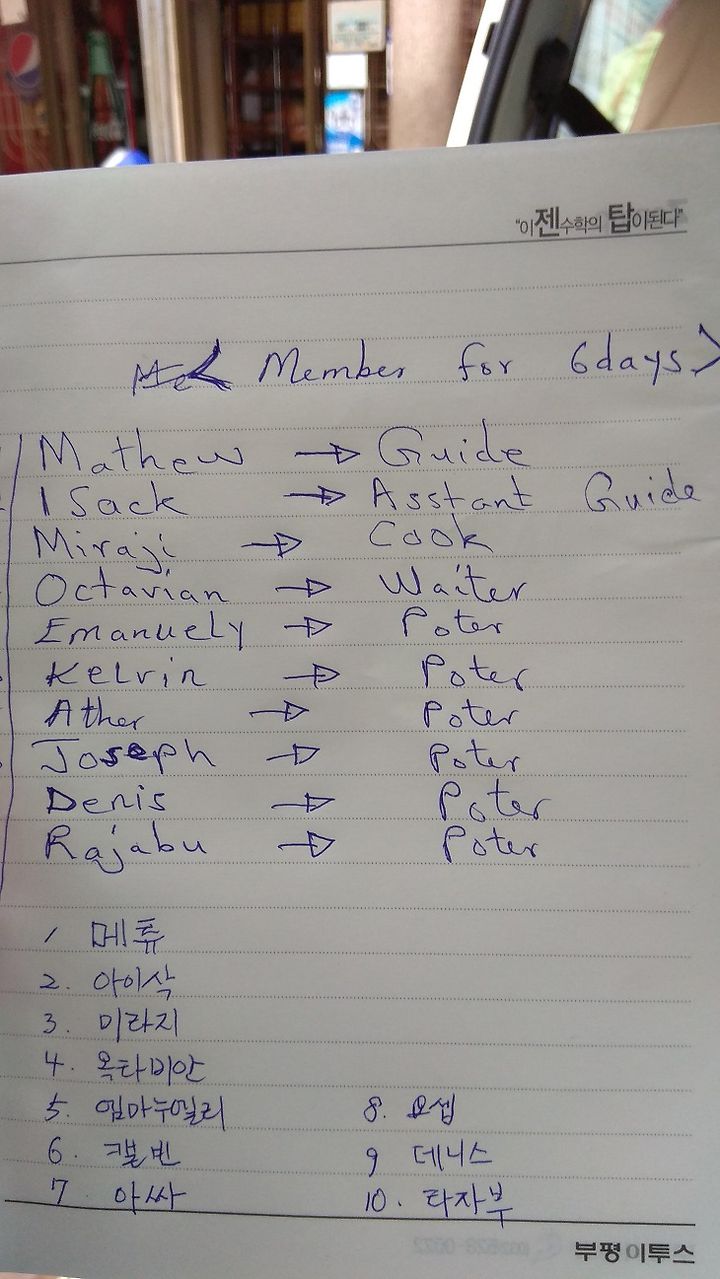 "이젠수학의 탑이된다"
< Member for 6days>
Mathew → Guide
Isack → Asstant Guide
Miraji → Cook
Octavian → Waiter
Emanuely → Poter
Kelvin → Poter
Ather → Poter
Joseph → Poter
Denis → Poter
Rajabu → Poter
1 메튜
2. 아이삭
3. 미라지
4. 옥타비안
5. 엠마누엘리
6. 캘빈
7. 아싸
8. 요셉
9 데니스
10. 라자부
부평이투스